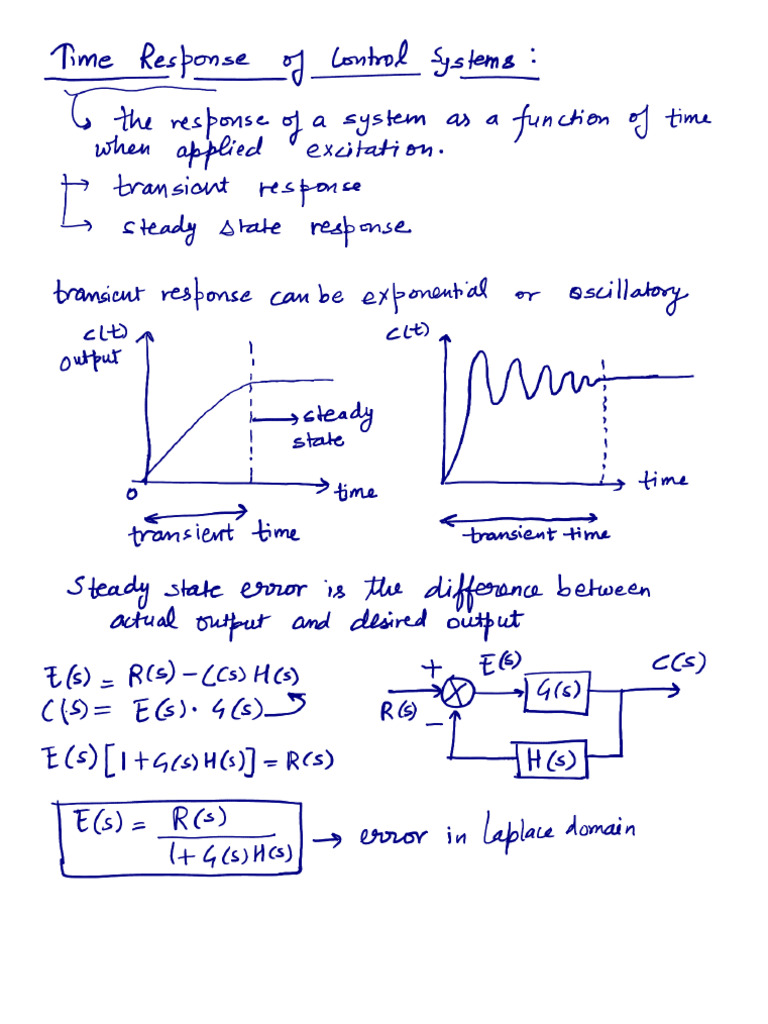 Time Response of Control Systems:
the response of a system as a function of time
when applied excitation.
transient response
steady state response
transient response can be exponential or oscillatory
c(t)
output
steady
state
0
time
transient time
c(t)
time
transient time
Steady state error is the difference between
actual output and desired output
E(s) = R(s) - C(s) H(s)
C(s) = E(s) · G(s)
E(s) [1 + G(s) H(s)] = R(s)
+
E(s)
C(s)
G(s)
R(s)
−
H(s)
E(s) = R(s)
1 + G(s) H(s)
→ error in Laplace domain